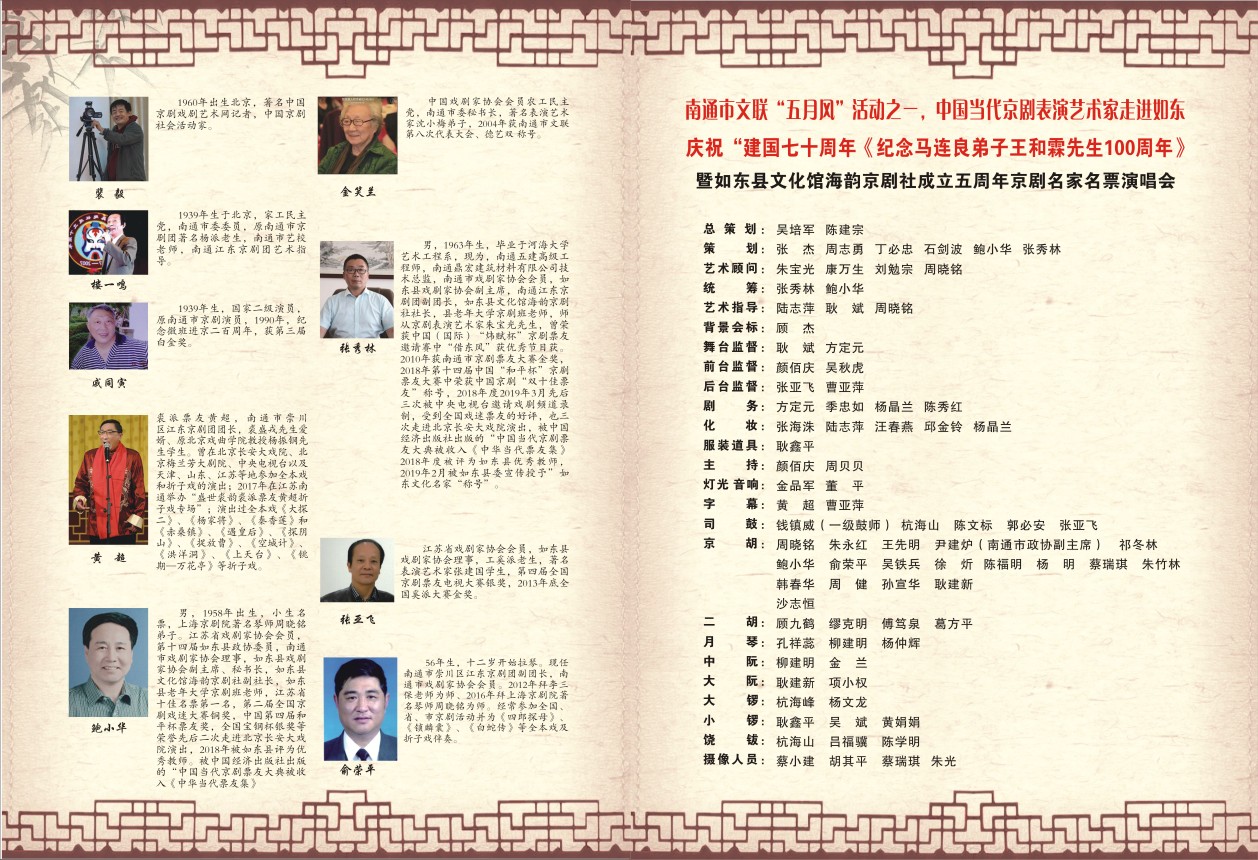 1960年出生北京，著名中国
京剧戏剧艺术网记者，中国京剧
社会活动家。
裴 毅
1939年生于北京，家工民主
党，南通市委委员，原南通市京
剧团著名杨派老生，南通市艺校
老师，南通江东京剧团艺术指
导。
楼一鸣
1939年生，国家二级演员，
原南通市京剧演员，1990年，纪
念徽班进京二百周年，获第三届
白金奖。
戚同寅
裘派票友黄超，南通市崇川
区江东京剧团团长，裘盛戎先生爱
婿、原北京戏曲学院教授杨振钢先
生学生。曾在北京长安大戏院、北
京梅兰芳大剧院、中央电视台以及
天津、山东、江苏等地参加全本戏
和折子戏的演出；2017年在江苏南
通举办“盛世裘韵裘派票友黄超折
子戏专场”；演出过全本戏《大探
二》、《杨家将》、《秦香莲》和
《赤桑镇》、《遇皇后》、《探阴
山》、《捉放曹》、《空城计》、
《洪洋洞》、《上天台》、《姚
期—万花亭》等折子戏。
黄 超
男，1958年出生，小生名
票，上海京剧院著名琴师周晓铭
弟子。江苏省戏剧家协会会员，
第十四届如东县政协委员，南通
市戏剧家协会理事，如东县戏剧
家协会副主席、秘书长，如东县
文化馆海韵京剧社副社长，如东
县老年大学京剧班老师，江苏省
十佳名票第一名，第二届全国京
剧戏迷大赛铜奖，中国第四届和
平杯票友奖，全国宝钢杯银奖等
荣誉先后二次走进北京长安大戏
院演出，2018年被如东县评为优
秀教师。被中国经济出版社出版
的“中国当代京剧票友大典被收
入《中华当代票友集》
鲍小华
中国戏剧家协会会员农工民主
党，南通市委秘书长，著名表演艺术
家沈小梅弟子，2004年获南通市文联
第八次代表大会、德艺双称号。
金笑兰
男，1963年生，毕业于河海大学
艺术工程系，现为，南通五建高级工
程师，南通鼎宏建筑材料有限公司技
术总监，南通市戏剧家协会会员，如
东县戏剧家协会副主席，南通江东京
剧团副团长，如东县文化馆海韵京剧
社社长，县老年大学京剧班老师，师
从京剧表演艺术家朱宝光先生，曾荣
获中国（国际）“炜赋杯”京剧票友
邀请赛中“借东风”获优秀节目获。
2010年获南通市京剧票友大赛金奖，
2018年第十四届中国“和平杯”京剧
票友大赛中荣获中国京剧“双十佳票
友”称号，2018年度2019年3月先后
三次被中央电视台邀请戏剧频道录
制，受到全国戏迷票友的好评，也三
次走进北京长安大戏院演出，被中国
经济出版社出版的“中国当代京剧票
友大典被收入《中华当代票友集》
2018年度被评为如东县优秀教师，
2019年2月被如东县委宣传授予”如
东文化名家“称号”。
张秀林
江苏省戏剧家协会会员，如东县
戏剧家协会理事，工奚派老生，著名
表演艺术家张建国学生，第四届全国
京剧票友电视大赛银奖，2013年底全
国奚派大赛金奖。
张亚飞
56年生，十二岁开始拉琴。现任
南通市崇川区江东京剧团副团长，南
通市戏剧家协会会员。2012年拜李三
保老师为师、2016年拜上海京剧院著
名琴师周晓铭为师。经常参加全国、
省、市京剧活动并为《四郎探母》、
《锁麟囊》、《白蛇传》等全本戏及
折子戏伴奏。
俞荣平
南通市文联“五月风”活动之一，中国当代京剧表演艺术家走进如东
庆祝“建国七十周年《纪念马连良弟子王和霖先生100周年》
暨如东县文化馆海韵京剧社成立五周年京剧名家名票演唱会
总 策 划：吴培军 陈建宗
策 划：张 杰 周志勇 丁必忠 石剑波 鲍小华 张秀林
艺术顾问：朱宝光 康万生 刘勉宗 周晓铭
统 筹：张秀林 鲍小华
艺术指导：陆志萍 耿 斌 周晓铭
背景会标：顾 杰
舞台监督：耿 斌 方定元
前台监督：颜佰庆 吴秋虎
后台监督：张亚飞 曹亚萍
剧 务：方定元 季忠如 杨晶兰 陈秀红
化 妆：张海洙 陆志萍 汪春燕 邱金铃 杨晶兰
服装道具：耿鑫平
主 持：颜佰庆 周贝贝
灯光音响：金品军 董 平
字 幕：黄 超 曹亚萍
司 鼓：钱镇威（一级鼓师） 杭海山 陈文标 郭必安 张亚飞
京 胡：周晓铭 朱永红 王先明 尹建炉（南通市政协副主席） 祁冬林
鲍小华 俞荣平 吴铁兵 徐 炘 陈福明 杨 明 蔡瑞琪 朱竹林
韩春华 周 健 孙宣华 耿建新
沙志恒
二 胡：顾九鹤 缪克明 傅笃泉 葛方平
月 琴：孔祥蕊 柳建明 杨仲辉
中 阮：柳建明 金 兰
大 阮：耿建新 项小权
大 锣：杭海峰 杨文龙
小 锣：耿鑫平 吴 斌 黄娟娟
饶 钹：杭海山 吕福骥 陈学明
摄像人员：蔡小建 胡其平 蔡瑞琪 朱光